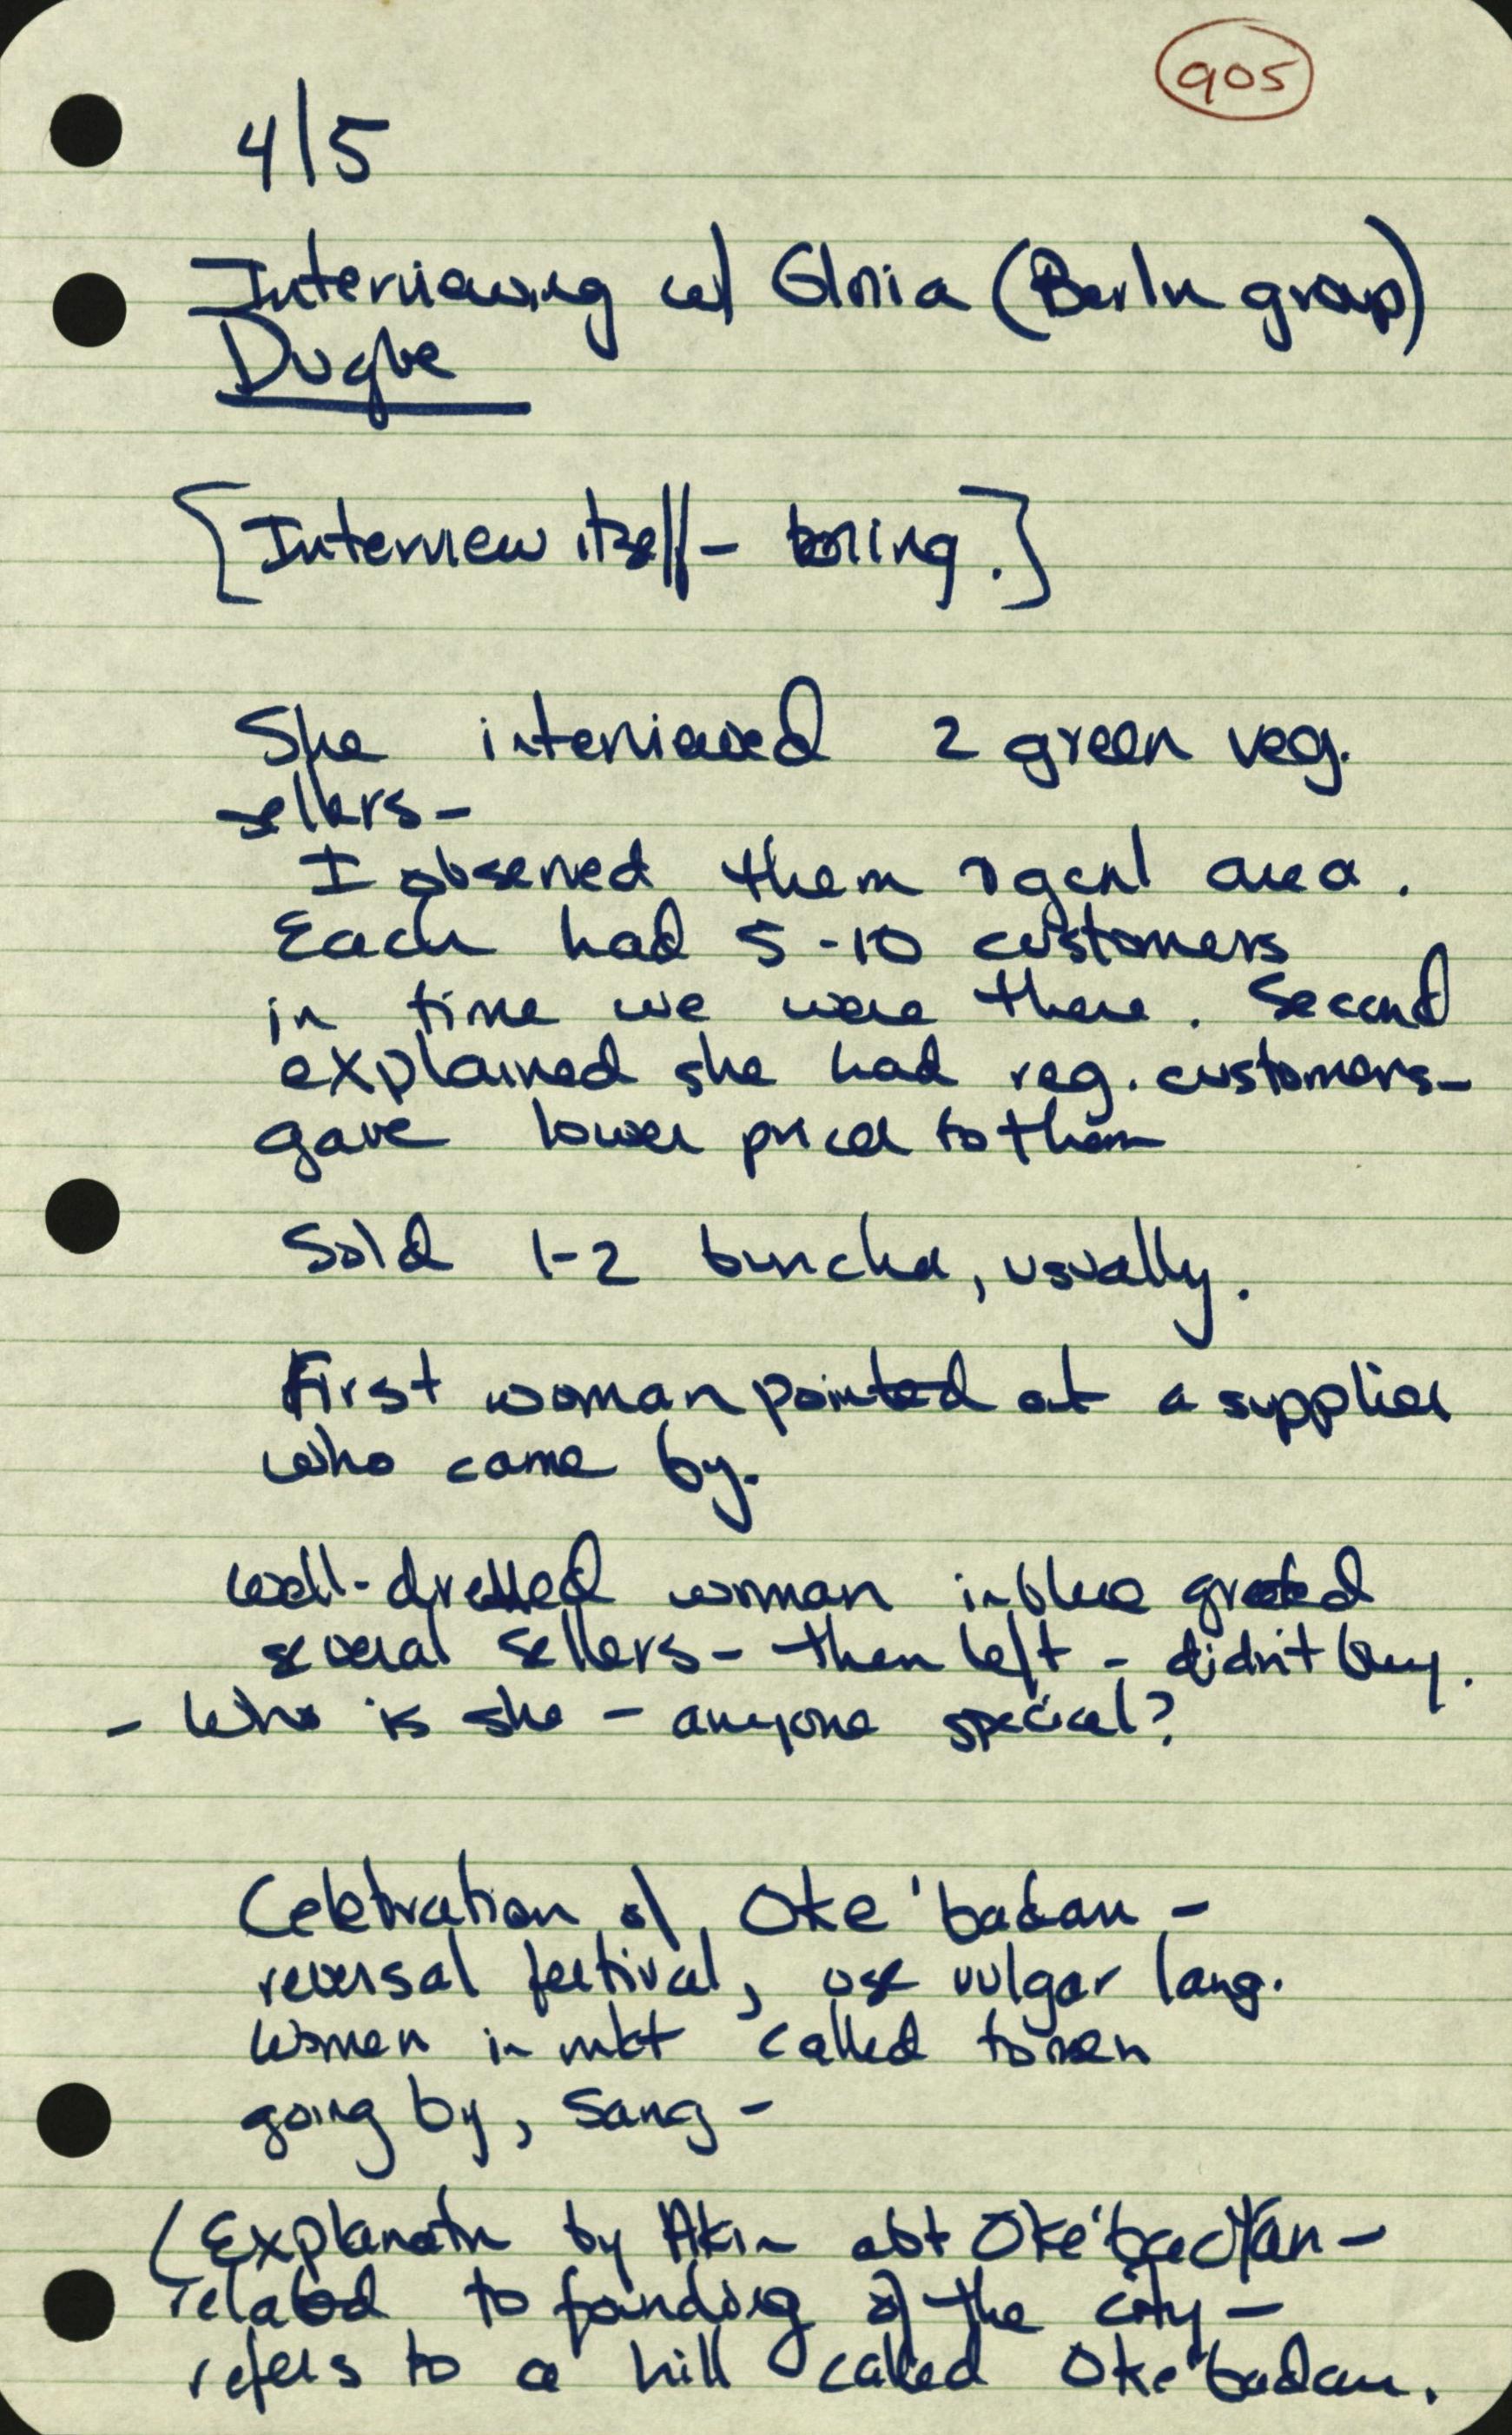 905
4/5
Interviewing w/ Gloria (Berlin group)
Dugbe
[Interview itself - boring.]
She interviewed 2 green veg.
sellers -
I observed them & genl area.
Each had 5-10 customers
in time we were there. Second
explained she had reg. customers -
gave lower prices to them
Sold 1-2 bunches, usually.
First woman pointed out a supplier
who came by.
Well-dressed woman in blue greeted
several sellers - then left - didn't buy.
- Who is she - anyone special?
Celebration of Oke'badan -
reversal festival, use vulgar lang.
Women in mkt called to men
going by, sang -
(Explanatn by Akin abt Oke'badan -
related to founding of the city -
refers to a hill called Oke'badan.